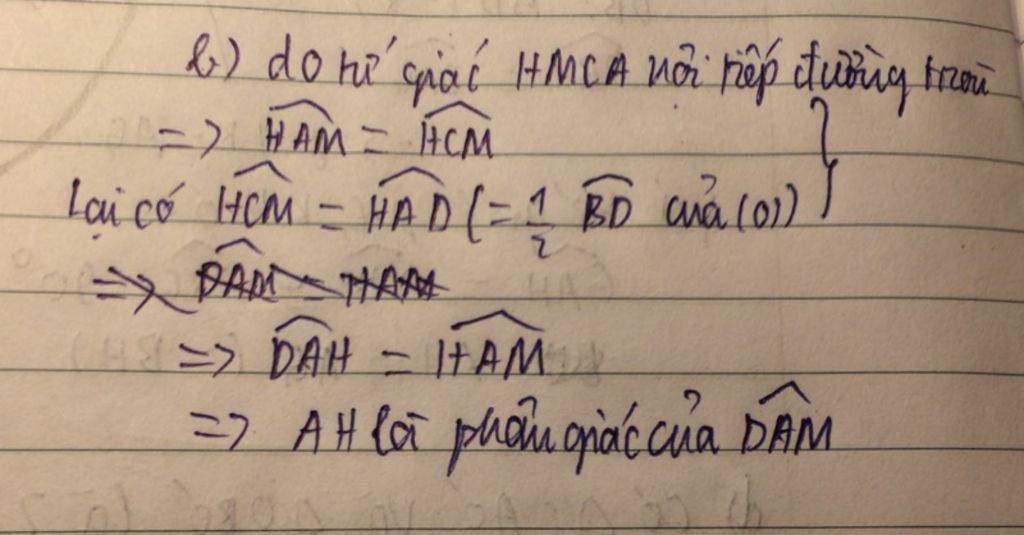 b) do tứ giác HMCA nội tiếp đường tròn
=> HAM = HCM
Lại có HCM = HAD (= 1/2 BD của (O))
=> DAM = HAM
=> DAH = HAM
=> AH là phân giác của DAM